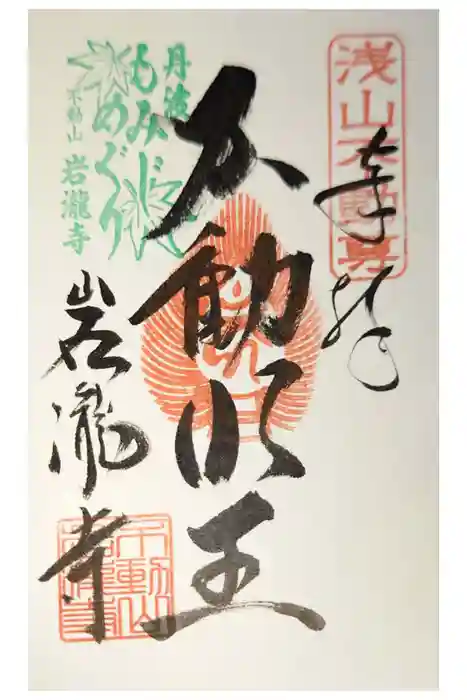 浅山不動尊
奉拝
不動明王
丹波
もみじ
めぐり
不動山
岩瀧寺
岩瀧寺
不動山
岩瀧寺